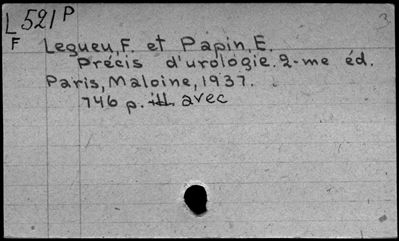 L 521 P
3
F
Legueu, F. et Papin, E.
Précis d'urologie. 2-me éd.
Paris, Maloine, 1937.
746 p. ill. avec